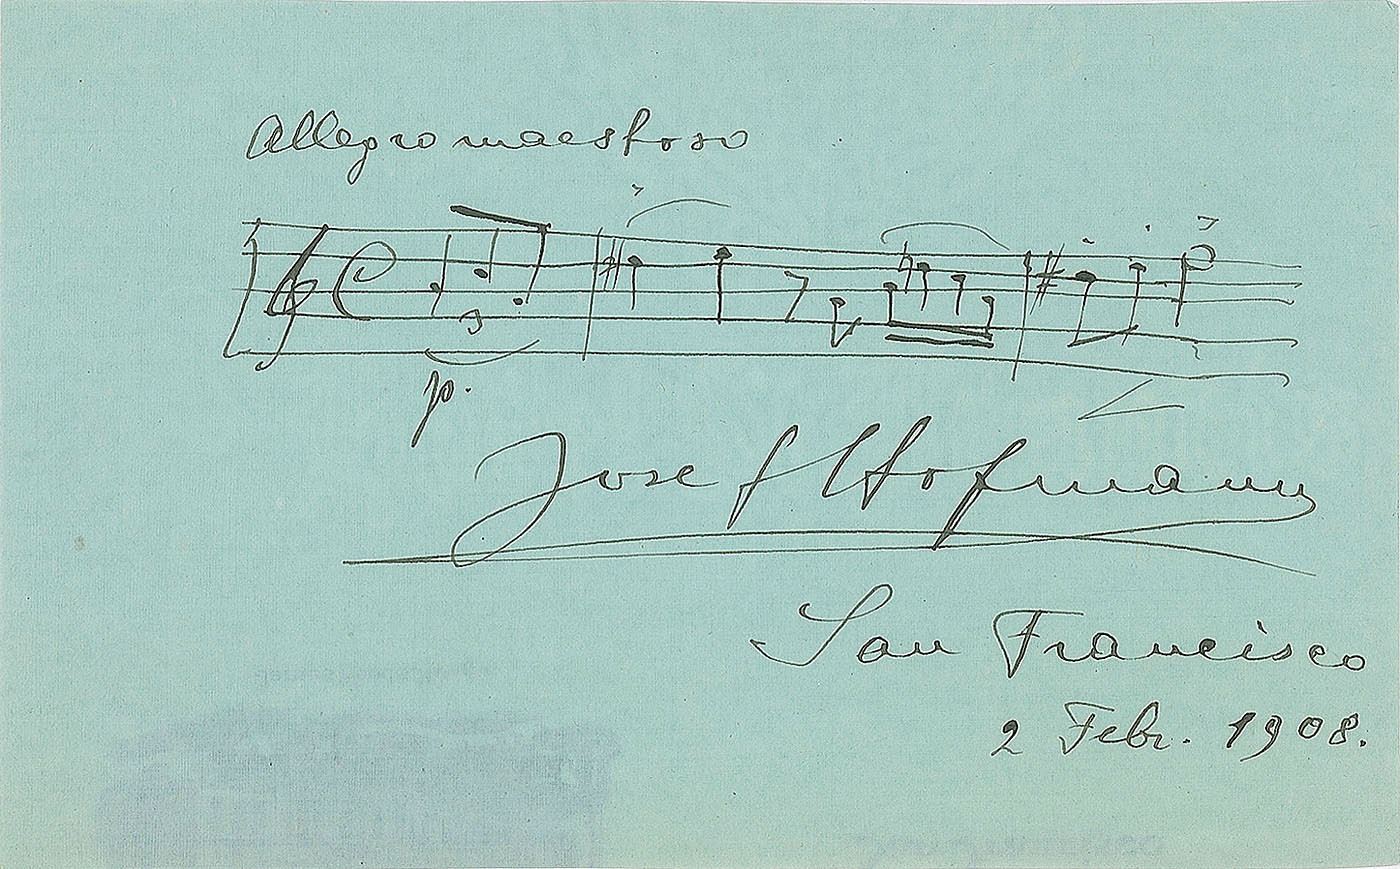 Allegro maestoso
3
p.
Josef Hofmann
San Francisco
2 Febr. 1908.